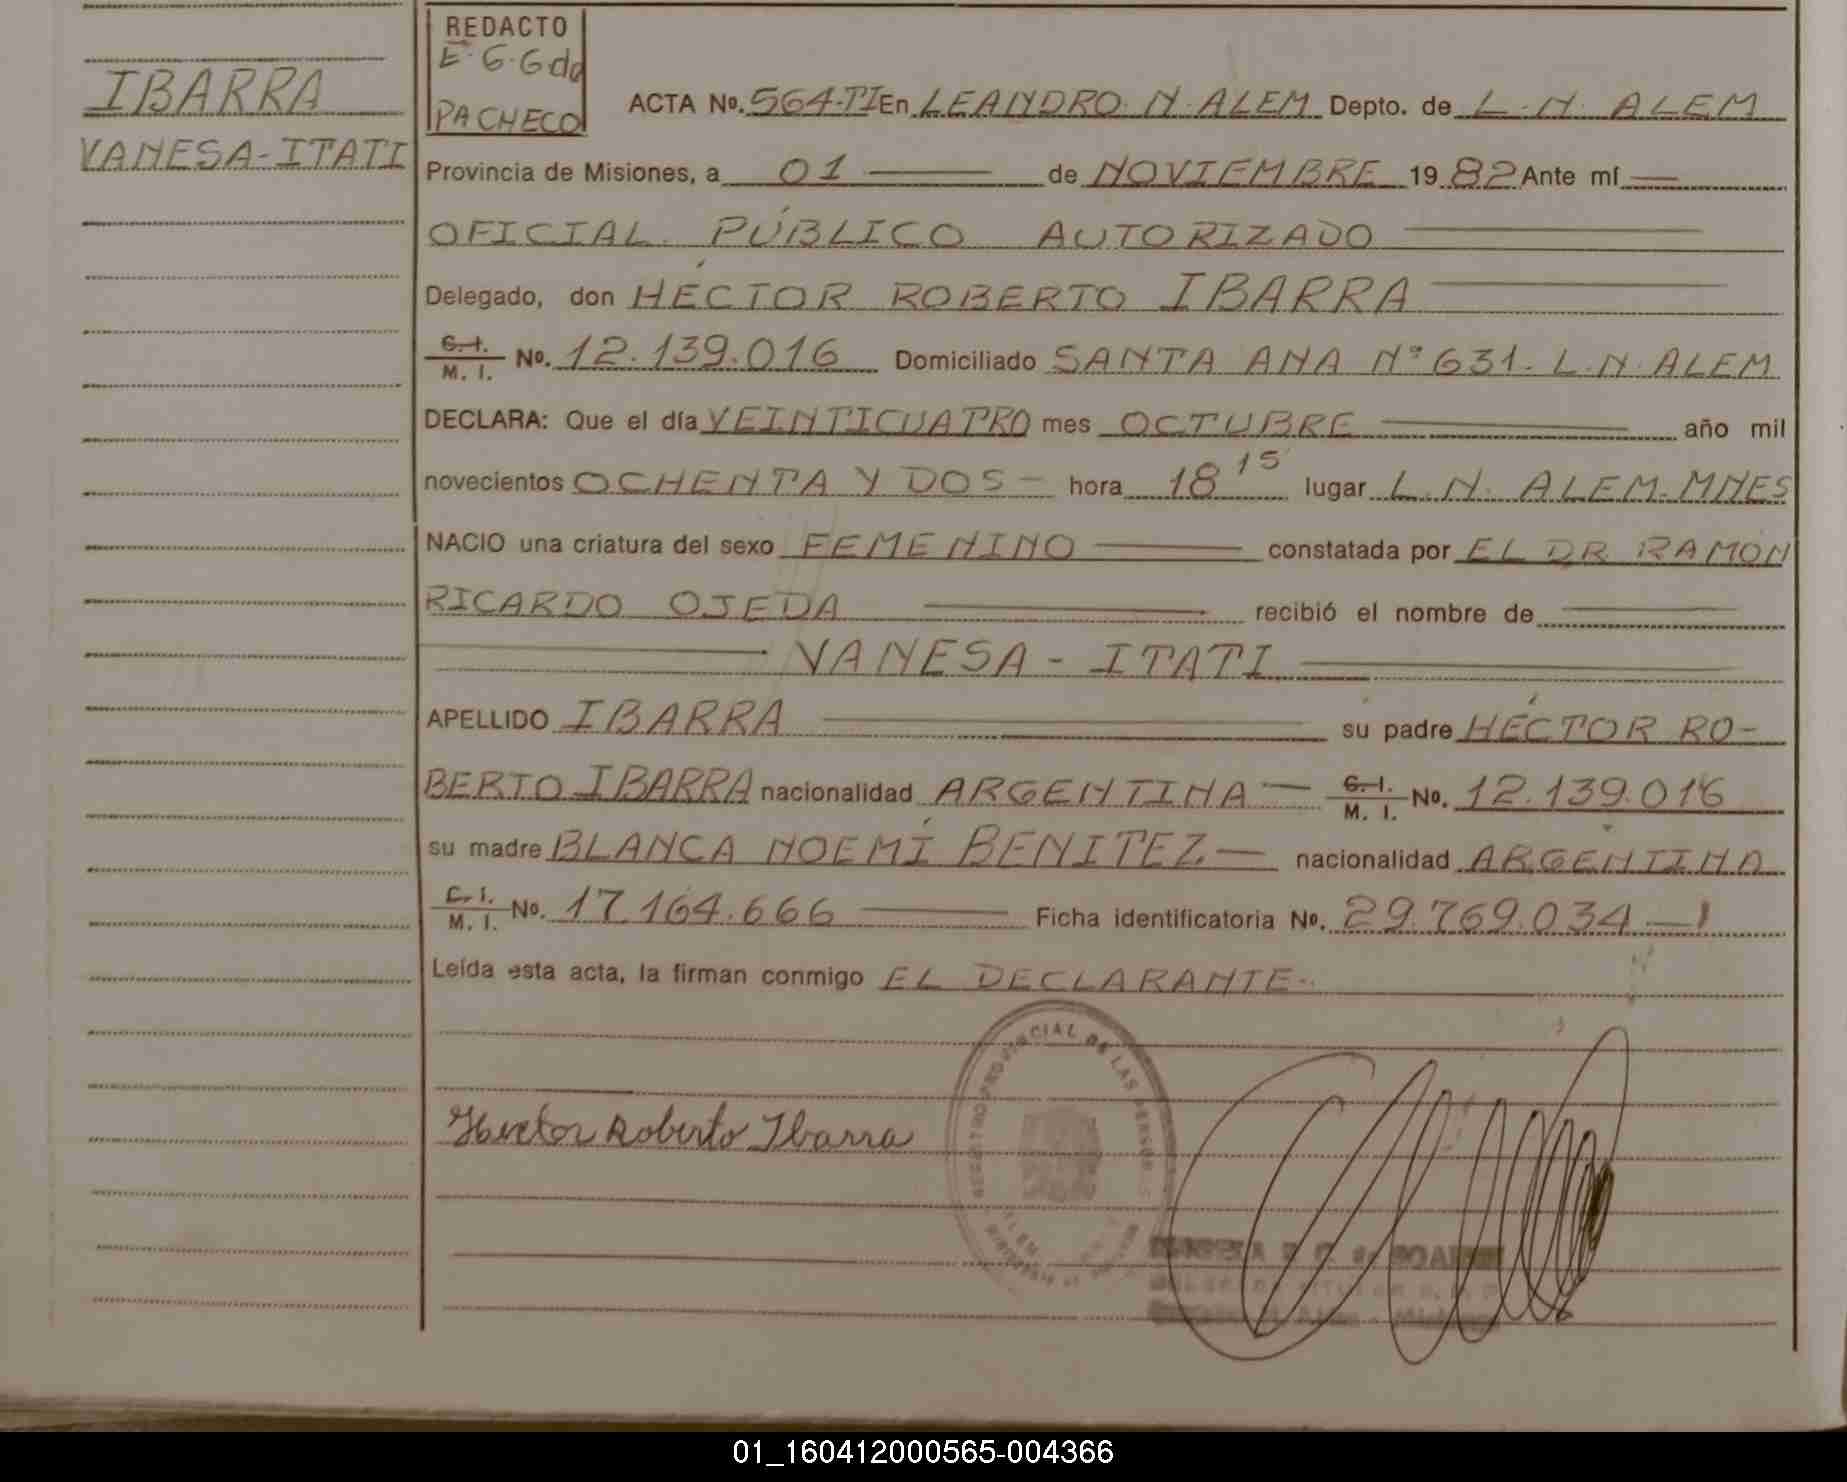 REDACTO
E. G. G. de
PACHECO
IBARRA
VANESA-ITATI
ACTA Nº. 564-TI En LEANDRO. N. ALEM Depto. de L. N. ALEM
Provincia de Misiones, a 01 de NOVIEMBRE 1982 Ante mí
OFICIAL PÚBLICO AUTORIZADO
Delegado, don HÉCTOR ROBERTO IBARRA
C. I. M. I. Nº. 12.139.016 Domiciliado SANTA ANA Nº 631. L.N. ALEM
DECLARA: Que el día VEINTICUATRO mes OCTUBRE año mil
novecientos OCHENTA Y DOS - hora 18 15 lugar L. N. ALEM. MNES
NACIO una criatura del sexo FEMENINO constatada por EL DR. RAMON
RICARDO OJEDA recibió el nombre de
VANESA - ITATI
APELLIDO IBARRA su padre HÉCTOR RO-
BERTO IBARRA nacionalidad ARGENTINA - C. I. M. I. Nº. 12.139.016
su madre BLANCA NOEMÍ BENITEZ - nacionalidad ARGENTINA
C. I. M. I. Nº. 17.164.666 Ficha identificatoria Nº. 29.769.034
Leída esta acta, la firman conmigo EL DECLARANTE.
REGISTRO PROVINCIAL DE LAS PERSONAS
Hector Roberto Ibarra
01_160412000565-004366